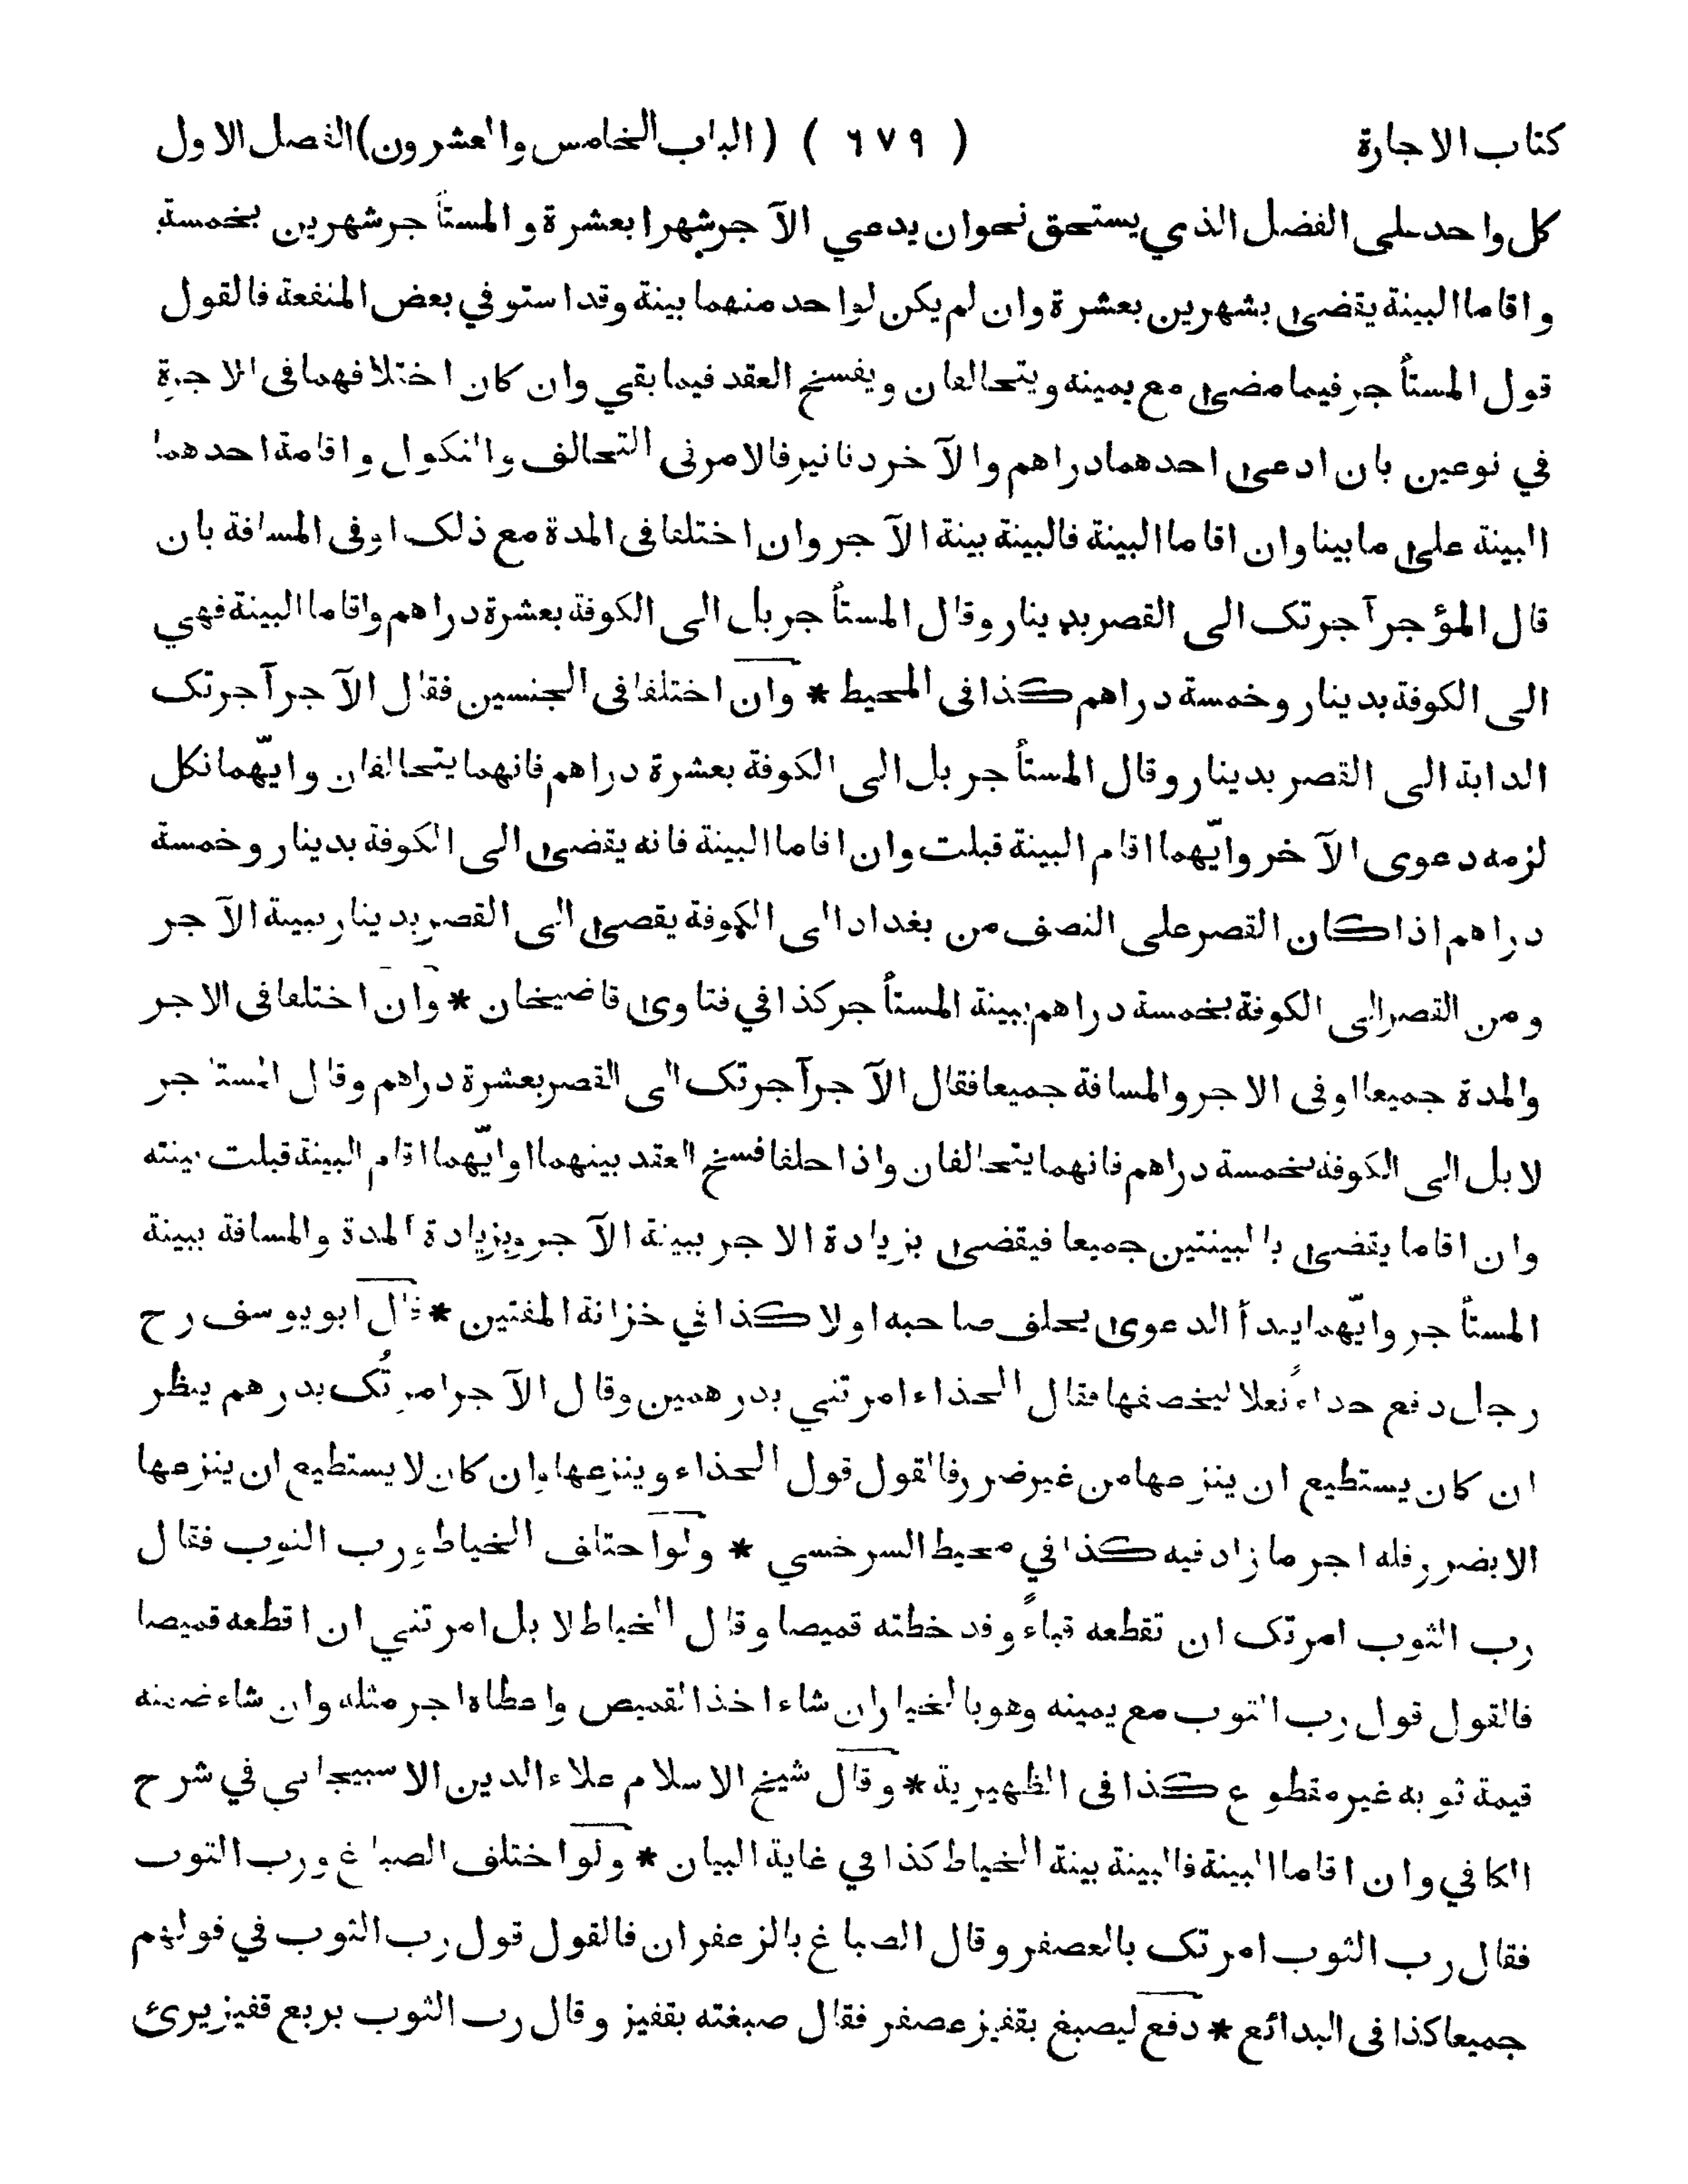 كتاب الاجارة ( ٦٧٩ ) ( الباب الخامس والعشرون)الفصل الاول
كل واحد على الفضل الذي يستحق نحوان يدعي الآجر شهرا بعشرة والمستأجر شهرين بخمسة
واقاما البينة يقضى بشهرين بعشرة وان لم يكن لواحد منهما بينة وقد استوفي بعض المنفعة فالقول
قول المستأجر فيما مضى مع يمينه ويتحالفان ويفسخ العقد فيما بقي وان كان اختلافهما فى الاجرة
في نوعين بان ادعى احدهما دراهم والآخر دنانير فالامر فى التحالف والنكول واقامة احدهما
البينة على ما بينا وان اقاما البينة فالبينة بينة الآجر وان اختلفا فى المدة مع ذلك اوفى المسافة بان
قال المؤجر آجرتك الى القصر بدينار وقال المستأجر بل الى الكوفة بعشرة دراهم واقاما البينة فهي
الى الكوفة بدينار وخمسة دراهم كذا فى المحيط * وان اختلفا فى الجنسين فقال الآجر آجرتك
الدابة الى القصر بدينار وقال المستأجر بل الى الكوفة بعشرة دراهم فانهما يتحالفان وايّهما نكل
لزمه دعوى الآخر وايّهما اقام البينة قبلت وان اقاما البينة فانه يقضى الى الكوفة بدينار وخمسة
دراهم اذا كان القصر على النصف من بغداد الى الكوفة يقضى الى القصر بدينار ببينة الآجر
ومن القصر الى الكوفة بخمسة دراهم ببينة المستأجر كذا في فتاوى قاضيخان * وان اختلفا فى الاجر
والمدة جميعا اوفى الاجر والمسافة جميعا فقال الآجر آجرتك الى القصر بعشرة دراهم وقال المستاجر
لا بل الى الكوفة بخمسة دراهم فانهما يتحالفان واذا حلفا فسخ العقد بينهما اوايّهما اقام البينة قبلت بينته
وان اقاما يقضى بالبينتين جميعا فيقضى بزيادة الاجر ببينة الآجر وبزيادة المدة والمسافة ببينة
المستأجر وايّهما يبدأ الدعوى يحلف صاحبه اولا كذا في خزانة المفتين * قال ابو يوسف رح
رجل دفع حذاءً نعلا ليخصفها فقال الحذاء امرتني بدرهمين وقال الآجر امرتُك بدرهم ينظر
ان كان يستطيع ان ينزعها من غير ضرر فالقول قول الحذاء وينزعها وان كان لا يستطيع ان ينزعها
الا بضرر فله اجر ما زاد فيه كذا في محيط السرخسي * ولو اختلف الخياط ورب الثوب فقال
رب الثوب امرتك ان تقطعه قباءً وقد خطته قميصا وقال الخياط لا بل امرتني ان اقطعه قميصا
فالقول قول رب الثوب مع يمينه وهو بالخيار ان شاء اخذ القميص واعطاه اجر مثله وان شاء ضمنه
قيمة ثوبه غير مقطوع كذا فى الظهيرية * وقال شيخ الاسلام علاء الدين الاسبيجابي في شرح
الكافي وان اقاما البينة فالبينة بينة الخياط كذا في غاية البيان * ولو اختلف الصباغ ورب الثوب
فقال رب الثوب امرتك بالعصفر وقال الصباغ بالزعفران فالقول قول رب الثوب في قولهم
جميعا كذا فى البدائع * دفع ليصبغ بقفيز عصفر فقال صبغته بقفيز وقال رب الثوب بربع قفيز يرى